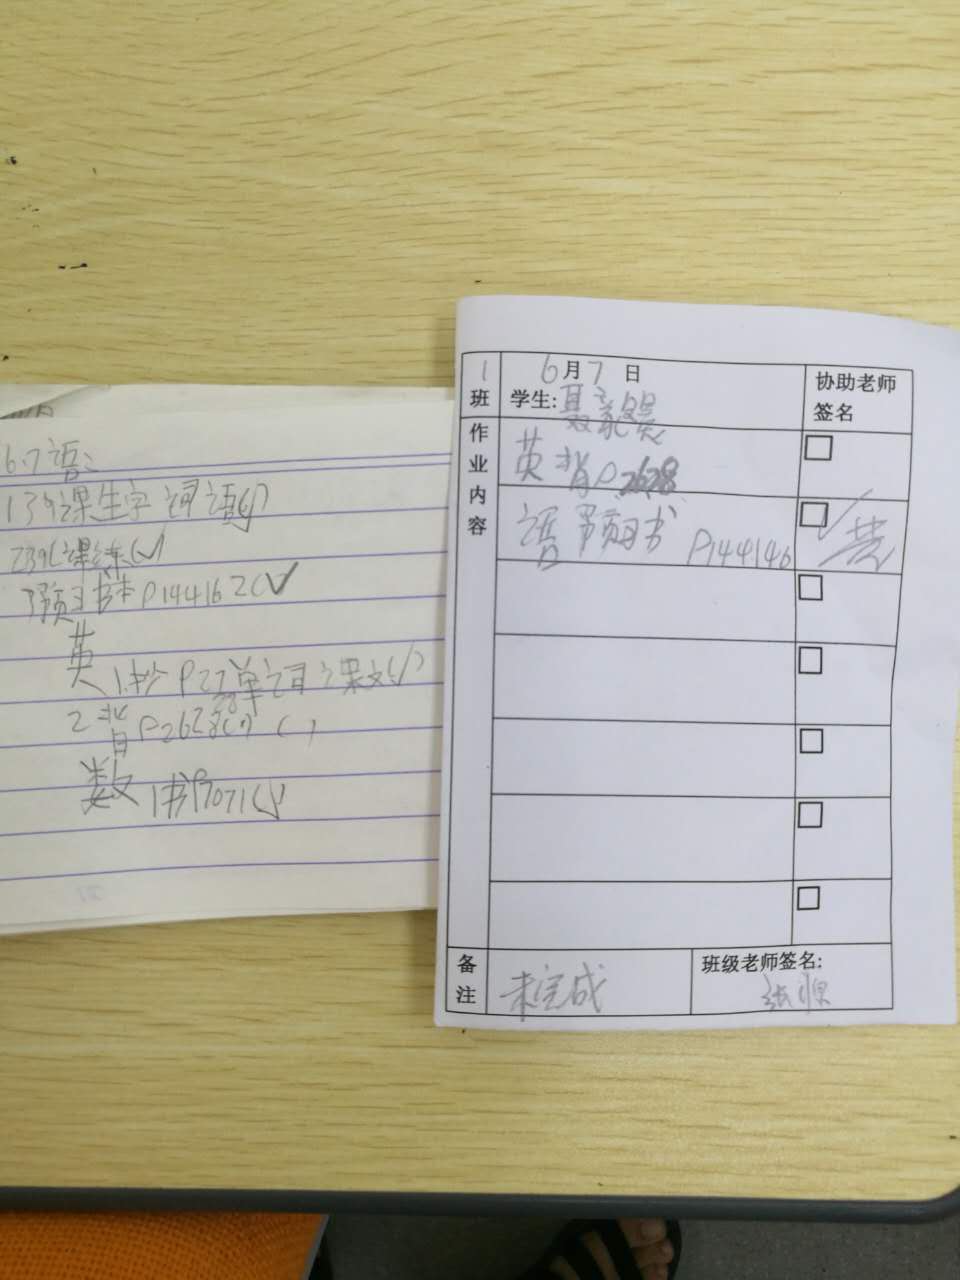 6.7语:
1 39课生字 词语(✓)
2 39课练(✓)
3预习书本P144162(✓
英
1.抄 P27单词 课文(✓)
28
2 背P2628 ( )
数 1书P7071(✓)
1班
6月7日
学生:聂
协助老师签名
作业内容
英 背P2628
语 预习书 P144146
备注
未完成
班级老师签名: